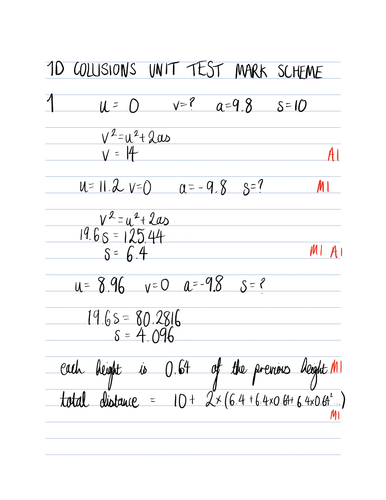 1D COLLISIONS UNIT TEST MARK SCHEME
1 u = 0 v=? a=9.8 s=10
v²=u²+2as
v = 14 A1
u=11.2 v=0 a=-9.8 s=? M1
v²=u²+2as
19.6s = 125.44
s = 6.4 M1 A1
u= 8.96 v=0 a=-9.8 s=?
19.6s = 80.2816
s = 4.096
each height is 0.64 of the previous height M1
total distance = 10+ 2×(6.4+6.4×0.64+6.4×0.64² )
M1